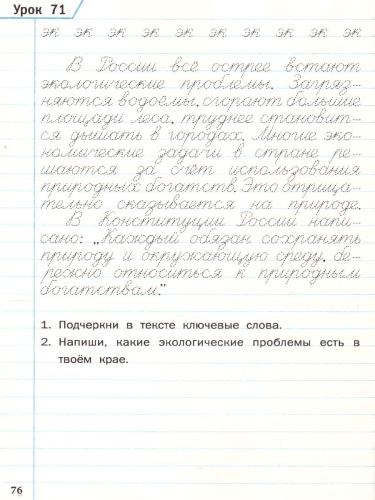 Урок 71
эк эк эк эк эк эк эк эк эк эк
В России всё острее встают
экологические проблемы. Загряз-
няются водоёмы, сгорают большие
площади леса, труднее становит-
ся дышать в городах. Многие эко-
номические задачи в стране ре-
шаются за счёт использования
природных богатств. Это отрица-
тельно сказывается на природе.
В Конституции России напи-
сано: „Каждый обязан сохранять
природу и окружающую среду, бе-
режно относиться к природным
богатствам."
1. Подчеркни в тексте ключевые слова.
2. Напиши, какие экологические проблемы есть в
твоём крае.
76